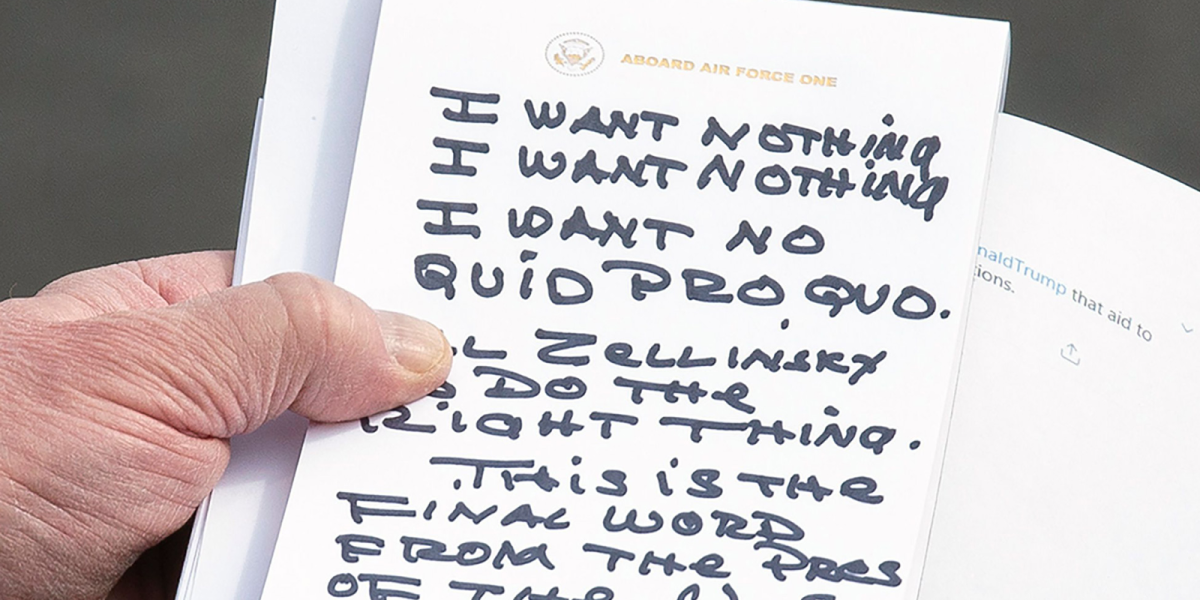 ABOARD AIR FORCE ONE
I WANT NOTHING
I WANT NOTHING
I WANT NO
QUID PRO QUO.
ZELLINSKY
DO THE
RIGHT THING.
.THIS IS THE
FINAL WORD
FROM THE PRES
OF THE
naldTrump that aid to
ions.